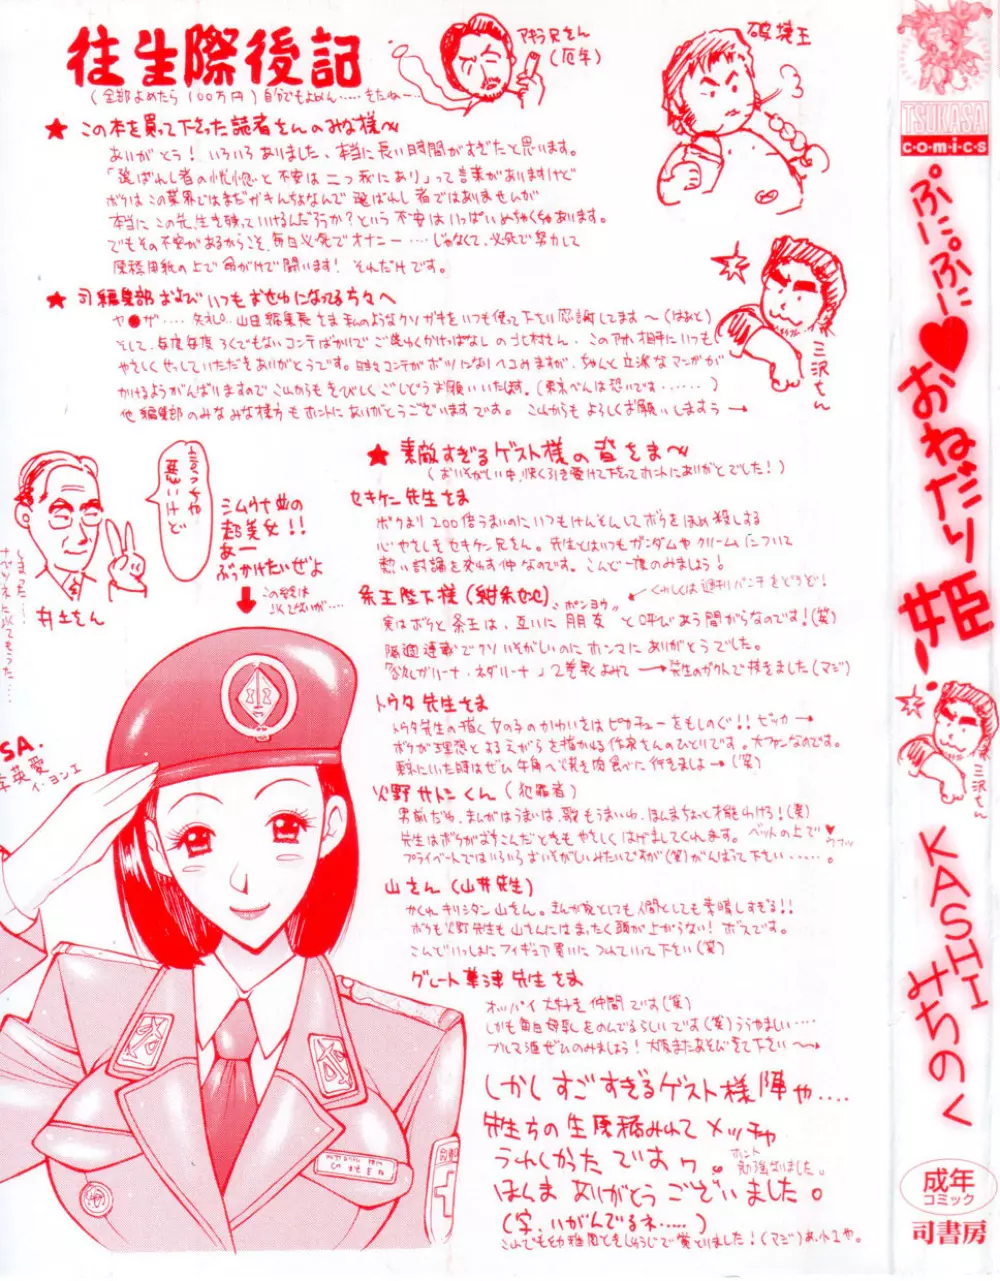 往生際後記
(全部よめたら100万円)自分でもよめん……きたねー…
アキラ兄さん
(厄年)
破壊王
★この本を買って下さった読者さんのみな様へ
ありがとう! いろいろありました、本当に長い時間がすぎたと思います。
「選ばれし者の恍惚と不安は二つ我にあり」って言葉がありますけど
ボクはこの業界ではまだガキんちょなんで選ばれし者ではありませんが
本当にこの先、生き残っていけるんだろうか?という不安はいっぱいめちゃくちゃあります。
でもその不安があるからこそ、毎日必死でオナニー……じゃなくて、必死で努力して
原稿用紙の上で命がけで闘います! それだけです。
★司編集部およびいつもおせわになってる方々へ
ヤ●ザ…… 山田編集長さま私のようなクソガキをいつも使って下さい感謝してます〜(はぁと)
そして、毎度毎度ろくでもないコンテばかりでご迷わくかけっぱなしの北村さん、このアホ相手にいつも
やさしくせっしていただきありがとうです。時々コンテがボツになりヘコみますが、ちゃんと立派なマンガが
かけるようがんばりますのでこれからもきびしくごしどうお願いいたします。(東京べんは恐いです……)
他編集部のみなみな様方もホントにありがとうございますです。これからもよろしくお願いしますう→
三沢さん
★素敵すぎるゲスト様の皆さま〜
(おいそがしい中、快く引き受けて下さってホントにありがとでした!)
セキケニ先生さま
ボクより200倍うまいのにいつもけんそんしてボクをほめ殺しする
心やさしきセキケニ兄さん。先生とはいつもガンダムやクリームについて
熱い討論を交わす仲なのです。こんど一度のみましょう!
くわしくは週刊パンチをどうぞ!
条王陛下様(紺条夜也)
ポンヨウ
実はボクと条王は、互いに朋友と呼びあう間がらなのです!(笑)
隔週連載でクソいそがしいのにホンマにありがとうでした。
トウタ先生さま
トウタ先生の描く女の子のかわいさはピカチューをもしのぐ!! ピッカー→
ボクが理想とするえがらを描かれる作家さんのひとりです。大ファンなのです。
東京にいた時はぜひ牛角へ焼き肉食べに行きましょ→(笑)
火野サトシくん(犯罪者)
男前だわ、まんがはうまいは、歌もうまいわ、ほんまちょっと才能わけろ!(笑)
先生はボクがおちこんだときもやさしくはげましてくれます。ベットの上で♥
プライベートではいろいろおいそがしいみたいですが(笑)がんばって下さい……。
山さん(山井先生)
かくれキリシタン山さん。まんが家としても人間としても素晴しすぎる!!
ボクも火野先生も山さんにはまったく頭が上がらない! ボスです。
こんどいっしょにフィギュア買いにつれていって下さい(笑)
グレート草津先生さま
オッパイ大好き仲間です(笑)
しかも毎日母乳をのんでるらしいです(笑)うらやましい…
プルマ酒ぜひのみましょう! 大阪またあそびきて下さい〜
しかしすごすぎるゲスト様陣や….
先生方の生原稿みれてメッチャ
うれしかったですわ。
ホント勉強なりました。
ほんまありがとうございました。
(字、いがんでるネ……)
言っちゃ悪いけど
井土さん
シムウナ並の
超美女!!
あー
ぶっかけたいぜよ
SA.
李英愛
イ・ヨンエ
TSUKASA
comics
ぷにぷに♥おねだり姫!
三沢さん
KASHIみちのく
成年
コミック
司書房